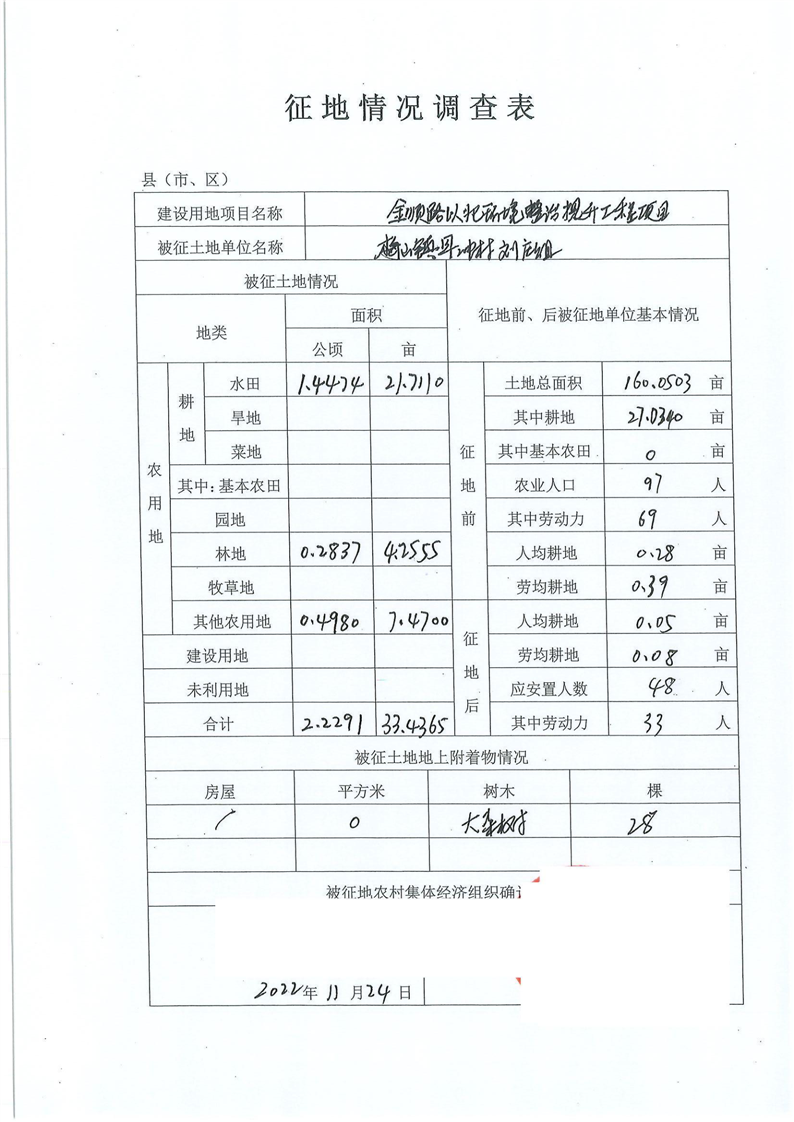 征地情况调查表
县（市、区）
建设用地项目名称 金顺路以北环境整治提升工程项目
被征土地单位名称 梅山镇 冲村刘庄组
被征土地情况 征地前、后被征地单位基本情况
地类 面积
公顷 亩
农用地 耕地 水田 1.4474 21.7110 征地前 土地总面积 160.0503 亩
旱地 其中耕地 27.0340 亩
菜地 其中基本农田 0 亩
其中:基本农田 农业人口 97 人
园地 其中劳动力 69 人
林地 0.2837 4.2555 人均耕地 0.28 亩
牧草地 劳均耕地 0.39 亩
其他农用地 0.4980 7.4700 征地后 人均耕地 0.05 亩
建设用地 劳均耕地 0.08 亩
未利用地 应安置人数 48 人
合计 2.2291 33.4365 其中劳动力 33 人
被征土地地上附着物情况
房屋 平方米 树木 棵
/ 0 大杂树 28
被征地农村集体经济组织确
2022年11月24日